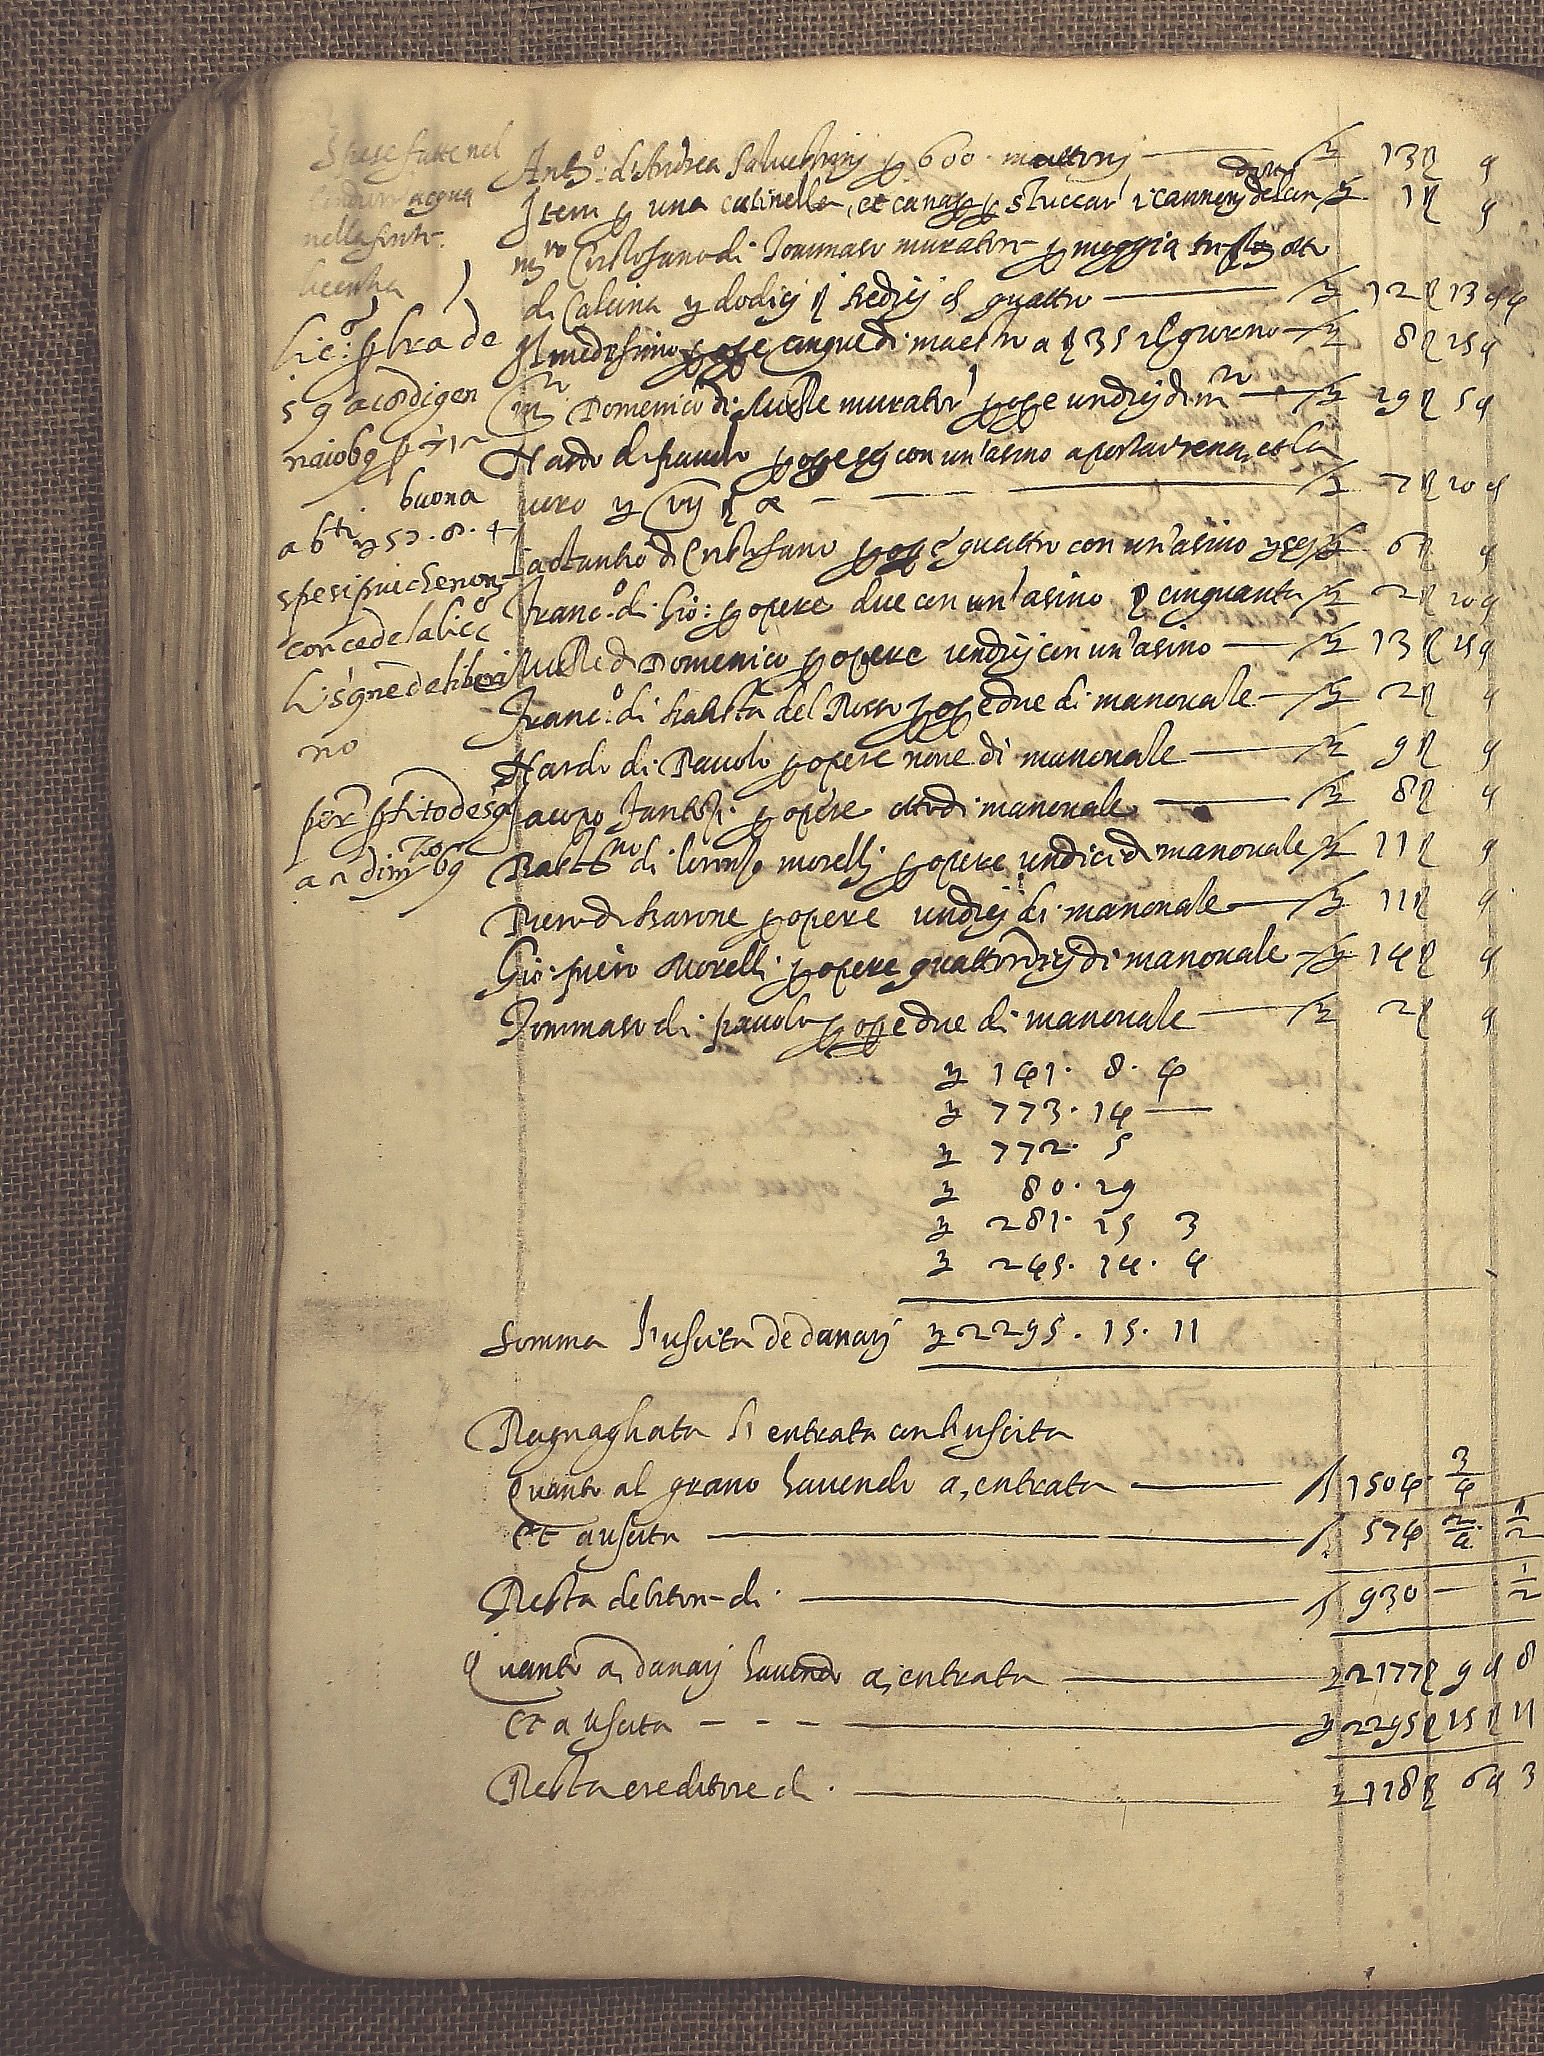 Spese fatte nel
condurr acqua
nella fonte
licentia
lic.ª p lra de
5 9
naio 69
buona
a 6ti ɣ 52. 8. 4
spesi piu che non
concede la lic.ª
li s.gri deliberi
no
per ptito de sig.ri
a n di
Ant.º d'Andrea Salvestrini p 600 mattoni — ɣ 13 ꝭ 9
Item p una catinella, et canapa p stuccar i cannoni ɣ 1 ꝭ 9
m.ro Cristofano di Tommaso muratore p moggia otto
di Calcina ɣ dodici ꝭ tredici d quattro — ɣ 12 ꝭ 13 d 4
Il medesimo p ope cinque di maestro a ꝭ 35 il giorno — ɣ 8 ꝭ 15 9
m.º Domenico di muratore p ope undici di m.º — ɣ 29 ꝭ 5 9
Nardo di pauolo p ope con un'asino a portar rena, et la
uoro ɣ vij ꝭ x — ɣ 7 ꝭ 10 d
di Cristofano p ope quattro con un'asino ɣ sei ɣ 6 ꝭ 9
Franc.º di Gio: p opere due con un'asino ꝭ cinquanta ɣ 2 ꝭ 10 9
di Domenico p opere undici con un'asino — ɣ 13 ꝭ 15 9
Franc.º di batista del Rosso p ope due di manouale — ɣ 2 ꝭ 9
Nardo di Pauolo p opere noue di manouale — ɣ 9 ꝭ 9
Jacopo p opere otto di manouale — ɣ 8 ꝭ 9
di lorenzo morelli p opere undici di manouale ɣ 11 ꝭ 9
Piero di barone p opere undici di manouale — ɣ 11 ꝭ 9
Gio: piero Morelli p opere quattordici di manouale — ɣ 14 ꝭ 9
Tommaso di pauolo p ope due di manouale — ɣ 2 ꝭ 9
ɣ 141. 8. 4
ɣ 773. 14 —
ɣ 772. 5
ɣ 80. 19
ɣ 281. 15 3
ɣ 245. 14. 4
Somma l'uscita de danari ɣ 2295. 15. 11
Ragnagliata l'entrata con l'uscita
Quanto al grano hauendo a, entrata — 1504 3/4
Et a uscita — 574 2/4 1/2
Resta debitor di. — 930 — 1/2
Quanto a, danari hauendo a, entrata — ɣ 2177 ꝭ 9 d 8
Et a uscita - - - — ɣ 2295 ꝭ 15 ꝭ 11
Resta creditore di. — ɣ 118 ꝭ 6 d 3